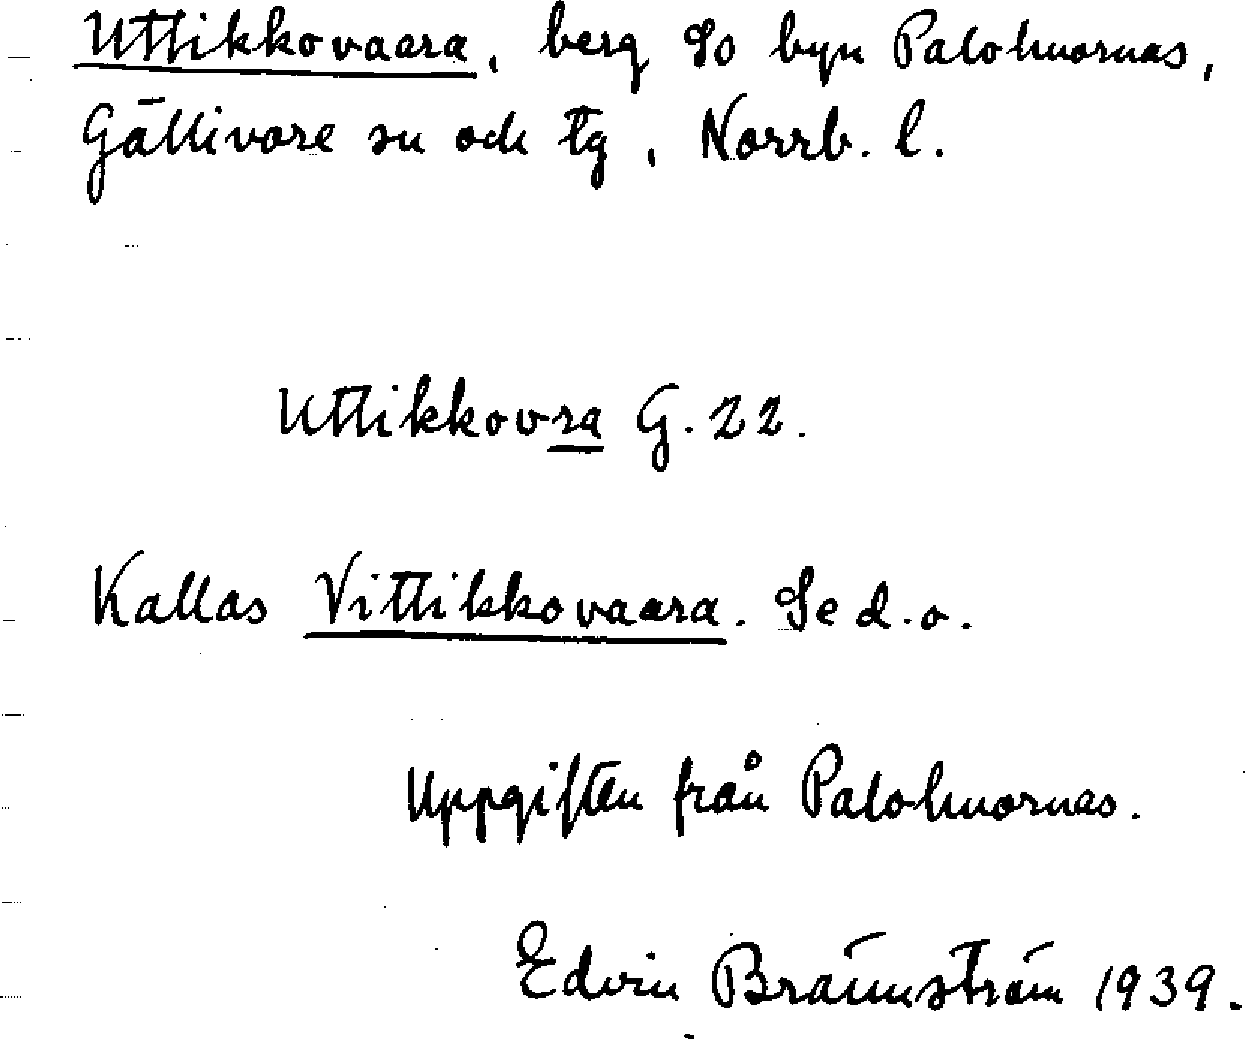 Uttikkovaara, berg So byn Palohuornas,
Gällivare sn och tg, Norrb. l.
Uttikkovra G. 22.
Kallas Vittikkovaara. Se d.o.
Uppgiften från Palohuornas.
Edvin Brännström 1939.